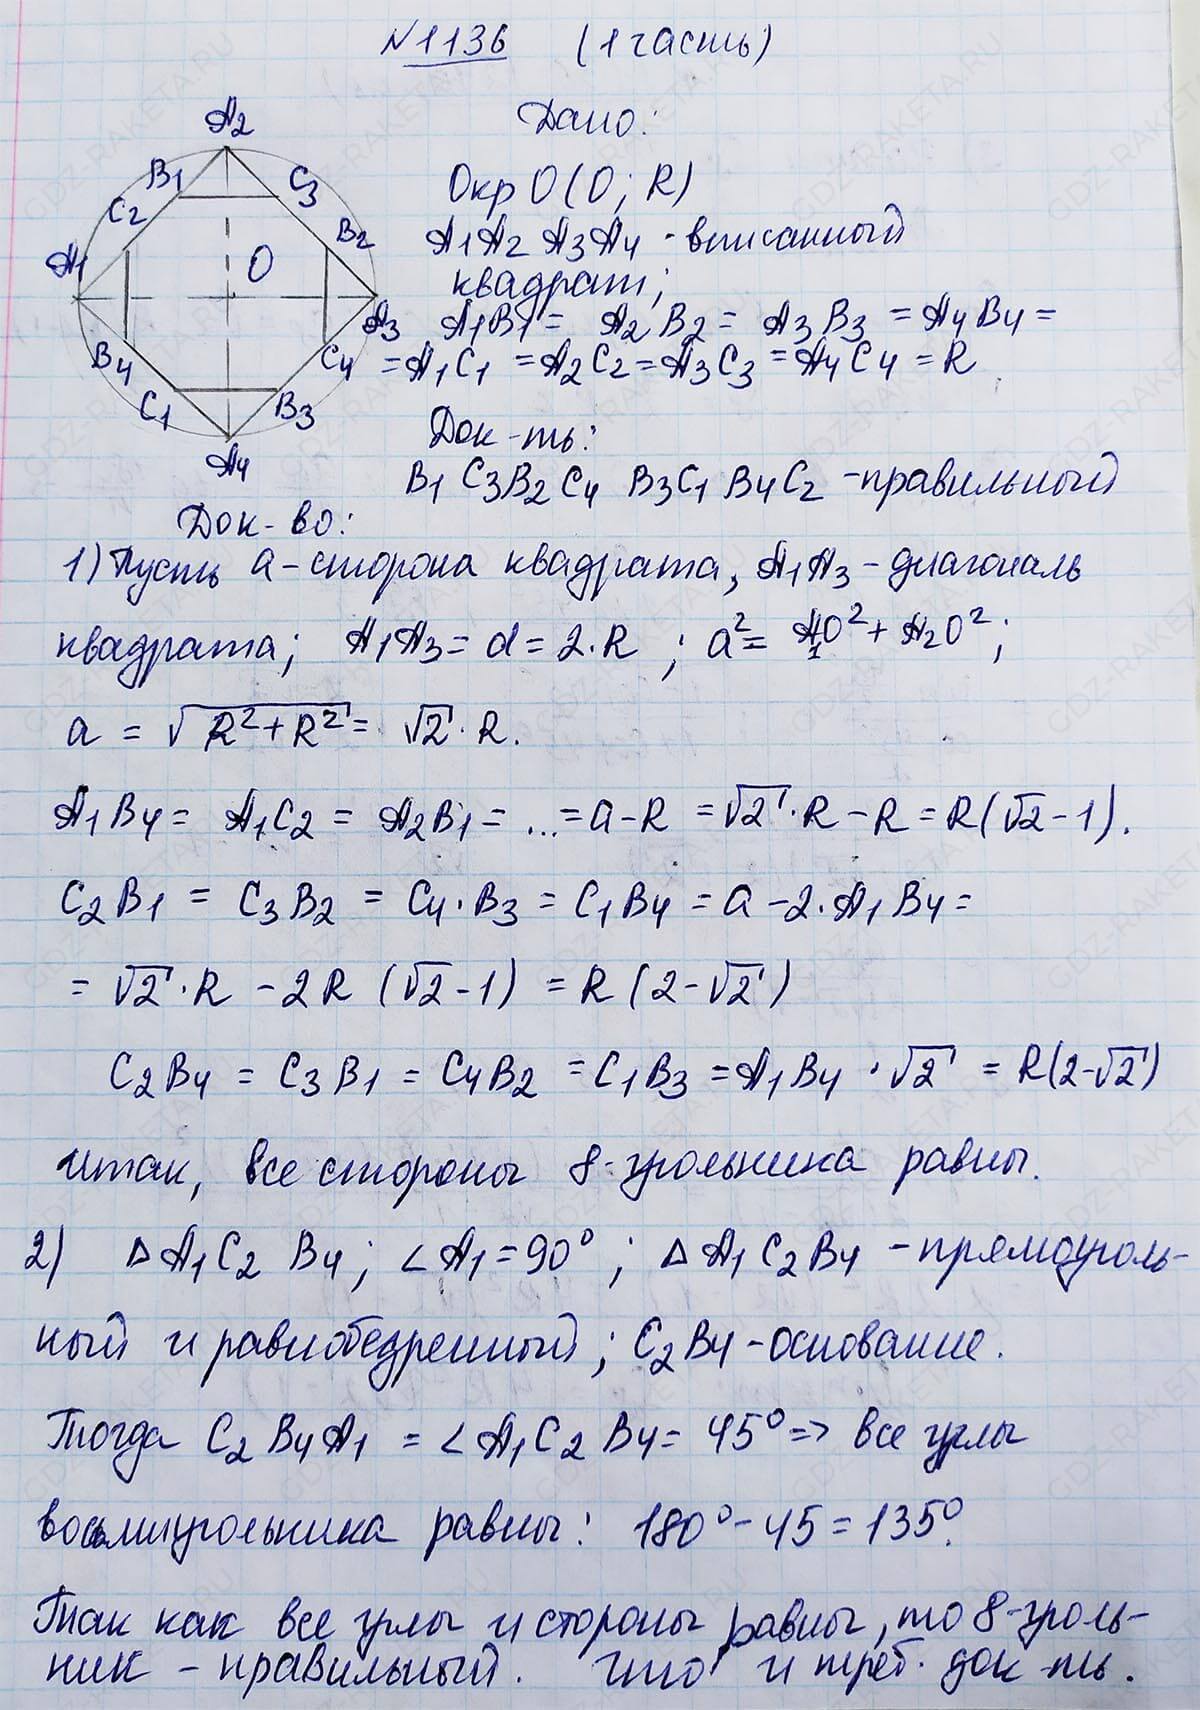 №1136 (1 часть)
A2
B1
C3
C2
B2
A1
O
A3
B4
C4
C1
B3
A4
Дано:
Окр O(O; R)
A1A2 A3A4 - вписанный
квадрат;
A1B1 = A2B2 = A3B3 = A4B4 =
= A1C1 = A2C2 = A3C3 = A4C4 = R
Док-ть:
B1 C3B2C4 B3C1 B4C2 - правильный
Док-во:
1) Пусть a - сторона квадрата, A1A3 - диагональ
квадрата; A1A3 = d = 2·R ; a² = A1O² + A2O²;
a = √(R² + R²) = √2·R.
A1B4 = A1C2 = A2B1 = ... = a - R = √2·R - R = R(√2 - 1).
C2B1 = C3B2 = C4·B3 = C1B4 = a - 2·A1B4 =
= √2·R - 2R (√2 - 1) = R(2 - √2)
C2B4 = C3B1 = C4B2 = C1B3 = A1B4 · √2 = R(2-√2)
итак, все стороны 8-угольника равны.
2) Δ A1C2 B4; ∠A1 = 90°; Δ A1C2B4 - прямоуголь-
ный и равнобедренный; C2B4 - основание.
Тогда C2B4A1 = ∠A1C2B4 = 45° => все углы
восьмиугольника равны: 180° - 45 = 135°.
Так как все углы и стороны равны, то 8-уголь-
ник - правильный. что и треб. док-ть.
GDZ-RAKETA.RU